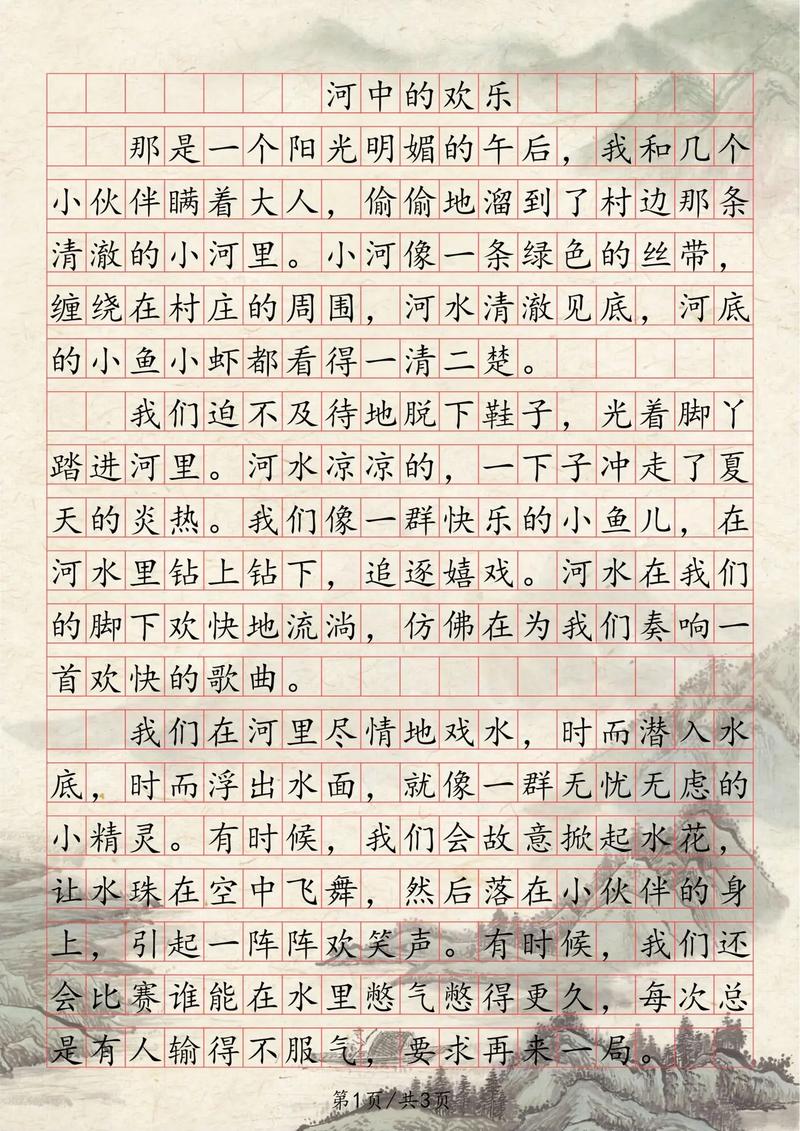 河中的欢乐
那是一个阳光明媚的午后，我和几个
小伙伴瞒着大人，偷偷地溜到了村边那条
清澈的小河里。小河像一条绿色的丝带，
缠绕在村庄的周围，河水清澈见底，河底
的小鱼小虾都看得一清二楚。
我们迫不及待地脱下鞋子，光着脚丫
踏进河里。河水凉凉的，一下子冲走了夏
天的炎热。我们像一群快乐的小鱼儿，在
河水里钻上钻下，追逐嬉戏。河水在我们
的脚下欢快地流淌，仿佛在为我们奏响一
首欢快的歌曲。
我们在河里尽情地戏水，时而潜入水
底，时而浮出水面，就像一群无忧无虑的
小精灵。有时候，我们会故意掀起水花，
让水珠在空中飞舞，然后落在小伙伴的身
上，引起一阵阵欢笑声。有时候，我们还
会比赛谁能在水里憋气憋得更久，每次总
是有人输得不服气，要求再来一局。
第1页/共3页